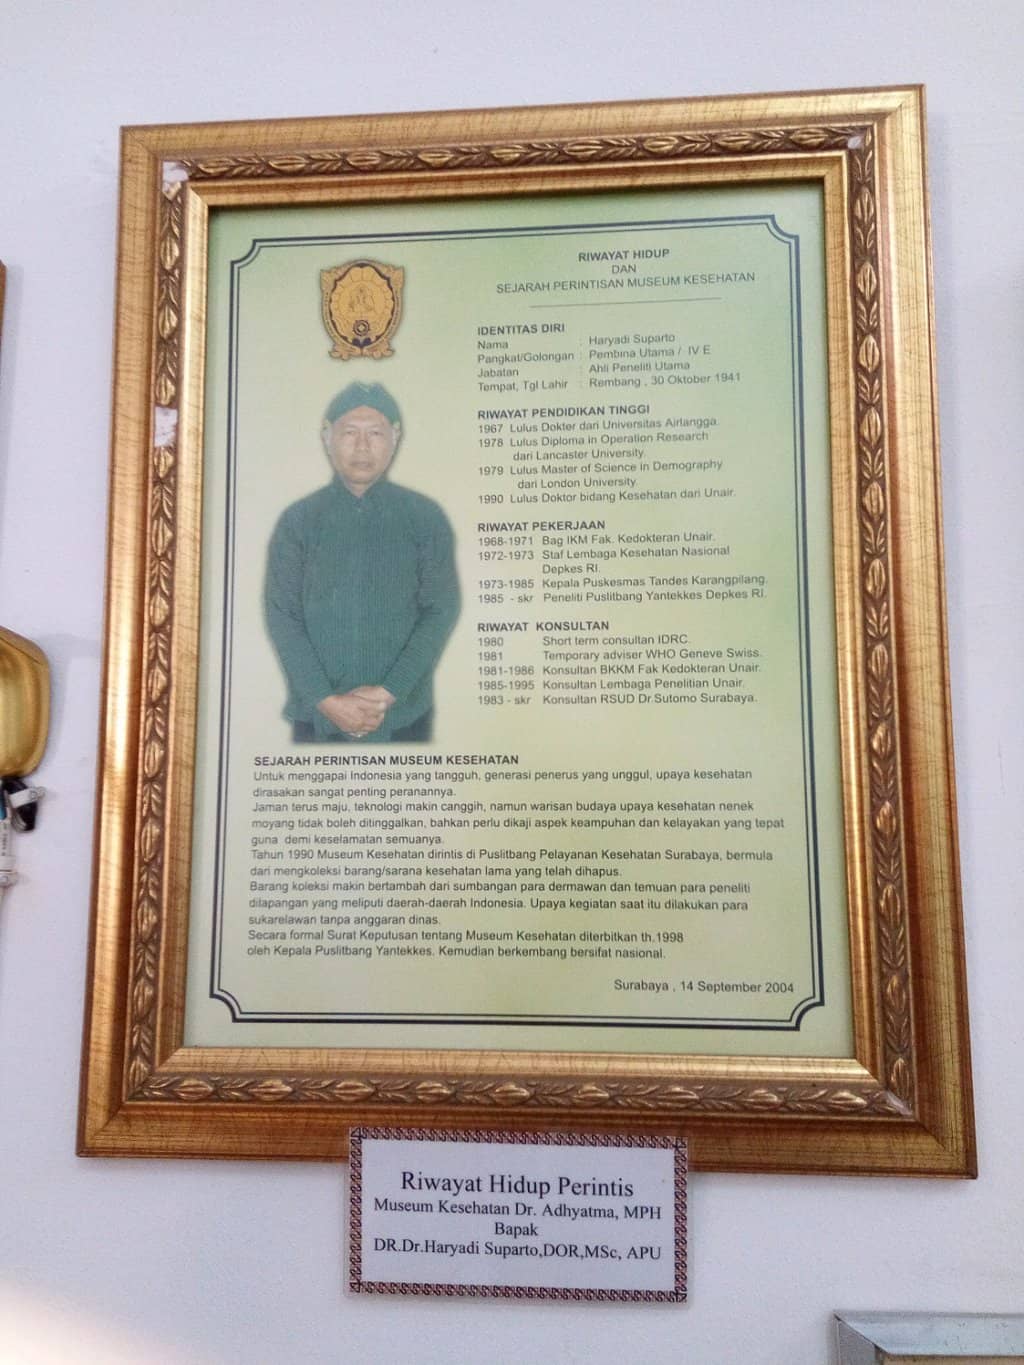 RIWAYAT HIDUP
DAN
SEJARAH PERINTISAN MUSEUM KESEHATAN
IDENTITAS DIRI
Nama : Haryadi Suparto
Pangkat/Golongan : Pembina Utama / IV E
Jabatan : Ahli Peneliti Utama
Tempat, Tgl Lahir : Rembang , 30 Oktober 1941
RIWAYAT PENDIDIKAN TINGGI
1967 Lulus Dokter dari Universitas Airlangga.
1978 Lulus Diploma in Operation Research
dari Lancaster University.
1979 Lulus Master of Science in Demography
dari London University.
1990 Lulus Doktor bidang Kesehatan dari Unair.
RIWAYAT PEKERJAAN
1968-1971 Bag IKM Fak. Kedokteran Unair.
1972-1973 Staf Lembaga Kesehatan Nasional
Depkes RI.
1973-1985 Kepala Puskesmas Tandes Karangpilang.
1985 - skr Peneliti Puslitbang Yantekkes Depkes RI.
RIWAYAT KONSULTAN
1980 Short term consultan IDRC.
1981 Temporary adviser WHO Geneve Swiss.
1981-1986 Konsultan BKKM Fak Kedokteran Unair.
1985-1995 Konsultan Lembaga Penelitian Unair.
1983 - skr Konsultan RSUD Dr.Sutomo Surabaya.
SEJARAH PERINTISAN MUSEUM KESEHATAN
Untuk menggapai Indonesia yang tangguh, generasi penerus yang unggul, upaya kesehatan
dirasakan sangat penting peranannya.
Jaman terus maju, teknologi makin canggih, namun warisan budaya upaya kesehatan nenek
moyang tidak boleh ditinggalkan, bahkan perlu dikaji aspek keampuhan dan kelayakan yang tepat
guna demi keselamatan semuanya.
Tahun 1990 Museum Kesehatan dirintis di Puslitbang Pelayanan Kesehatan Surabaya, bermula
dari mengkoleksi barang/sarana kesehatan lama yang telah dihapus.
Barang koleksi makin bertambah dari sumbangan para dermawan dan temuan para peneliti
dilapangan yang meliputi daerah-daerah Indonesia. Upaya kegiatan saat itu dilakukan para
sukarelawan tanpa anggaran dinas.
Secara formal Surat Keputusan tentang Museum Kesehatan diterbitkan th.1998
oleh Kepala Puslitbang Yantekkes. Kemudian berkembang bersifat nasional.
Surabaya , 14 September 2004
Riwayat Hidup Perintis
Museum Kesehatan Dr. Adhyatma, MPH
Bapak
DR.Dr.Haryadi Suparto,DOR,MSc, APU